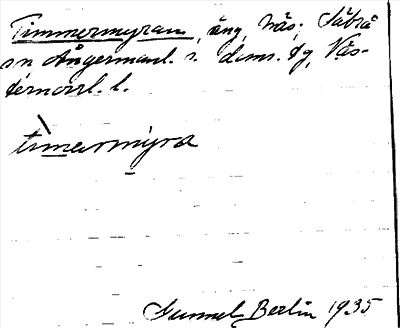 Timmermyran, äng, Näs, Säbrå
sn Ångermanl. s. doms. tg, Väs-
ternorrl. l.
timərmýra
Gunnel Berlin 1935